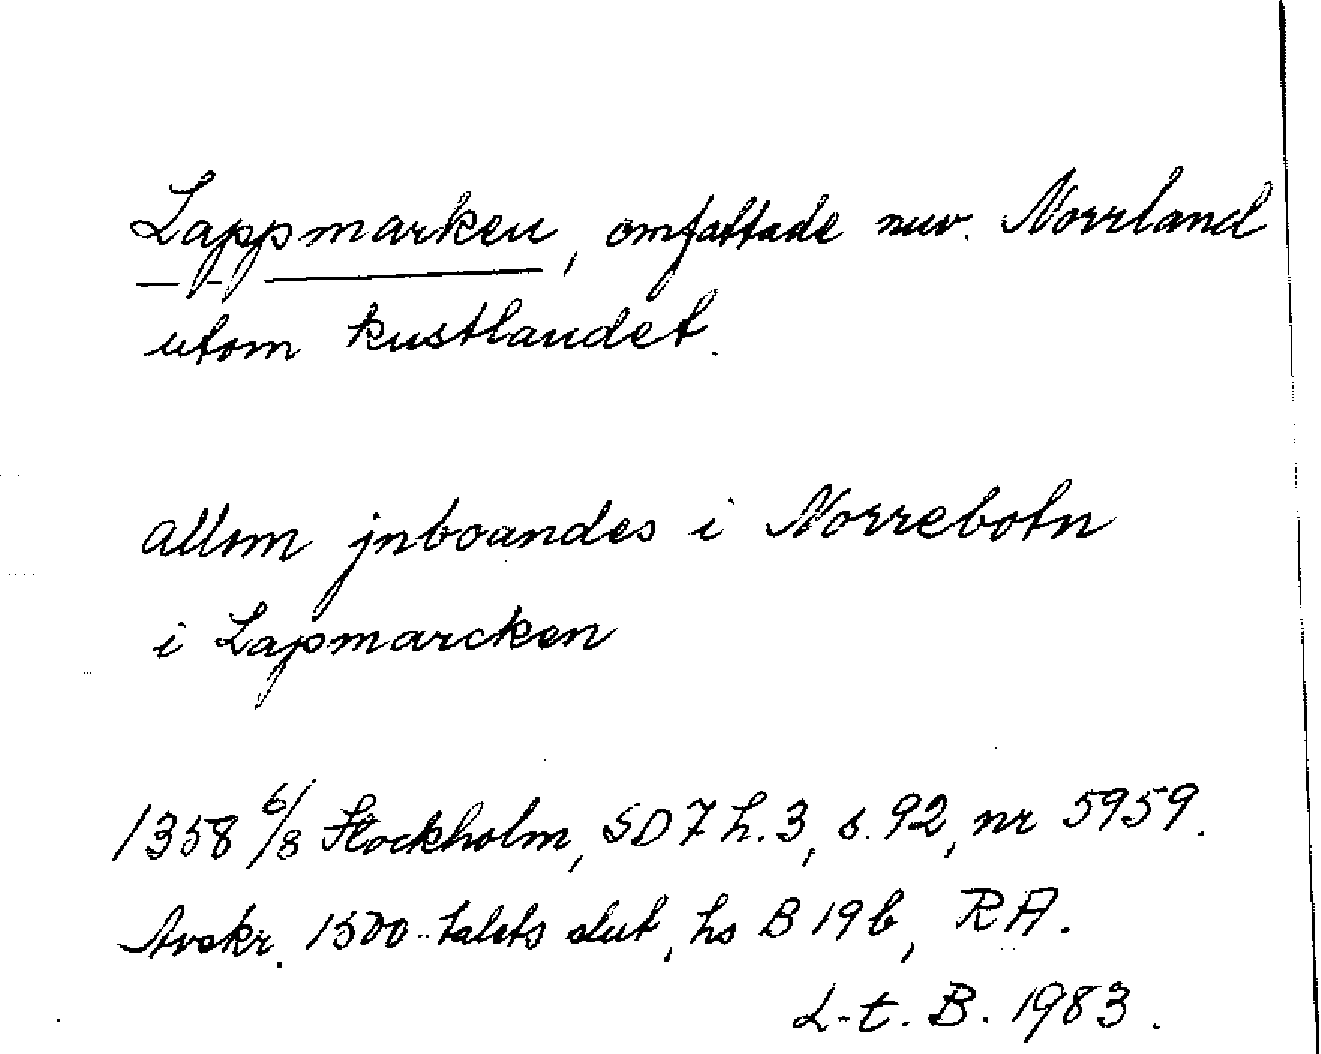 Lappmarken, omfattade nuv. Norrland
utom kustlandet.
allom jnboandes i Norrebotn
i Lapmarcken
1358 6/8 Stockholm, SD 7 h. 3, s. 92, nr 5959.
Avskr. 1500-talets slut, hs B 19 b, RA.
L-t. B. 1983.